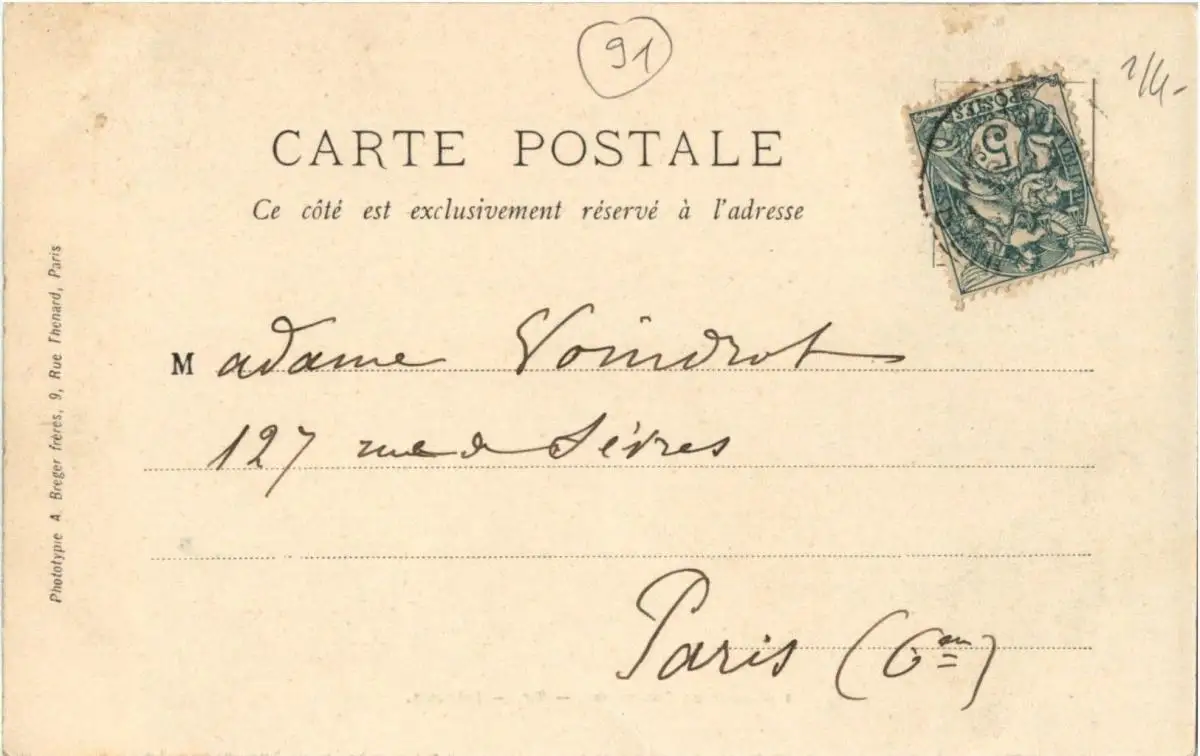 91
2/4-
CARTE POSTALE
Ce côté est exclusivement réservé à l'adresse
POSTES
5
Madame Voindrot
127 rue de Sèvres
Paris (6em)
Phototypie A. Breger frères, 9, Rue Thenard, Paris